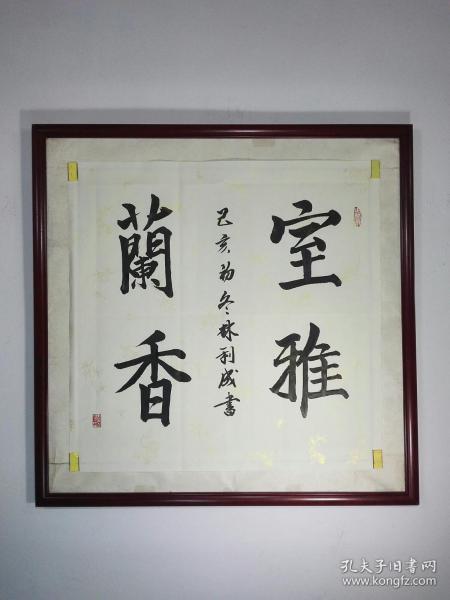 室雅
蘭香
己亥初冬林利成書
孔夫子旧书网
www.kongfz.com